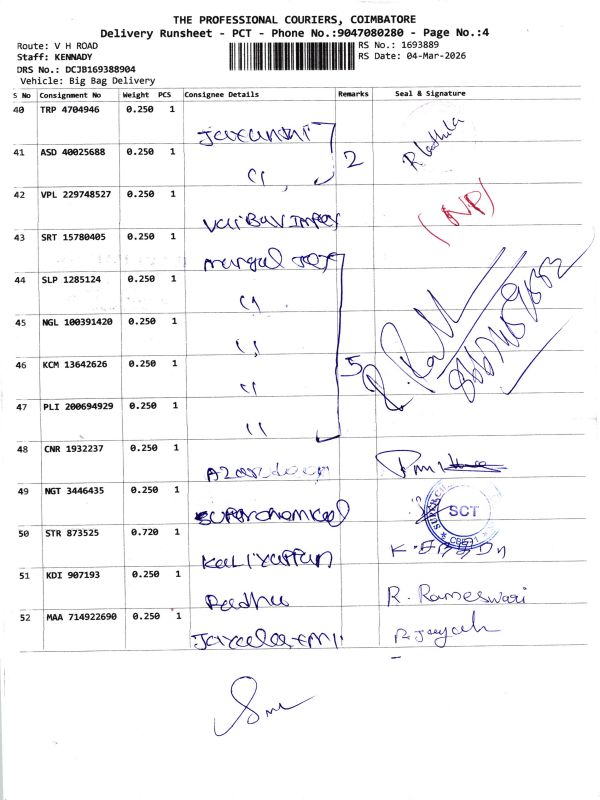 THE PROFESSIONAL COURIERS, COIMBATORE
Delivery Runsheet - PCT - Phone No.:9047080280 - Page No.:4
Route: V H ROAD
RS No.: 1693889
Staff: KENNADY
RS Date: 04-Mar-2026
DRS No.: DCJB169388904
Vehicle: Big Bag Delivery
S No Consignment No Weight PCS Consignee Details Remarks Seal & Signature
40 TRP 4704946 0.250 1
41 ASD 40025688 0.250 1 " 2
42 VPL 229748527 0.250 1 (NP)
43 SRT 15780405 0.250 1
44 SLP 1285124 0.250 1 "
45 NGL 100391420 0.250 1 "
46 KCM 13642626 0.250 1 " 5
47 PLI 200694929 0.250 1 "
48 CNR 1932237 0.250 1
49 NGT 3446435 0.250 1 SCT
50 STR 873525 0.720 1
51 KDI 907193 0.250 1 Padhu R. Rameswari
52 MAA 714922690 0.250 1